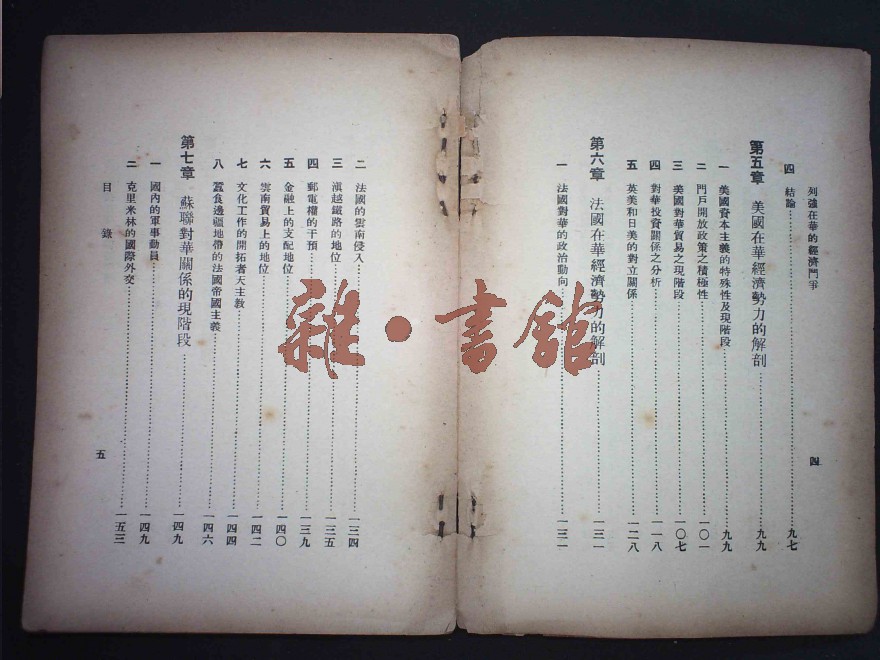 列強在華的經濟鬥爭
四
四 結論⋯⋯九七
第五章 美國在華經濟勢力的解剖⋯⋯九九
一 美國資本主義的特殊性及現階段⋯⋯九九
二 門戶開放政策之積極性⋯⋯一〇一
三 美國對華貿易之現階段⋯⋯一〇七
四 對華投資關係之分析⋯⋯一一八
五 英美和日美的對立關係⋯⋯一二八
第六章 法國在華經濟勢力的解剖⋯⋯一三一
一 法國對華的政治動向⋯⋯一三一
二 法國的雲南侵入⋯⋯一三四
三 滇越鐵路的地位⋯⋯一三五
四 郵電權的干預⋯⋯一三九
五 金融上的支配地位⋯⋯一四〇
六 雲南貿易上的地位⋯⋯一四二
七 文化工作的開拓者天主教⋯⋯一四四
八 蠶食邊疆地帶的法國帝國主義⋯⋯一四六
第七章 蘇聯對華關係的現階段⋯⋯一四九
一 國內的軍事動員⋯⋯一四九
二 克里米林的國際外交⋯⋯一五三
目錄
五
雜·書館